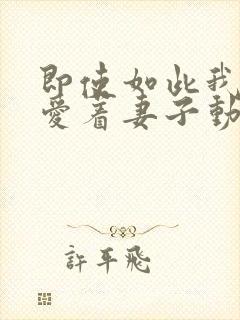 即使如此我
愛着妻子動
許平飛